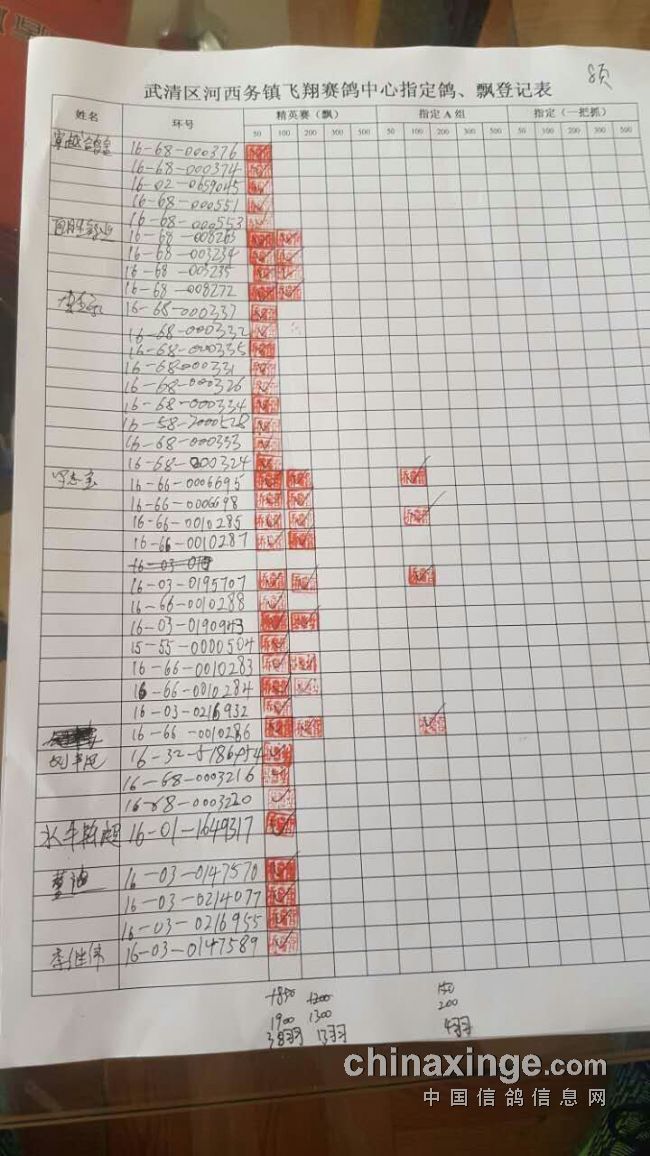 须
武清区河西务镇飞翔赛鸽中心指定鸽、飘登记表
姓名 环号 精英赛（飘） 指定A组 指定（一把抓）
50 100 200 300 500 50 100 200 300 500 50 100 200 300 500
16-68-000376
16-68-000374
16-02-0659045
16-68-000551
16-68-000553
16-68-008265
16-68-003234
16-68-003235
16-68-008272
16-68-000337
16-68-000332
16-68-000335
16-68-000331
16-68-000326
16-68-000334
16-58-2000528
16-68-000333
16-68-000324
16-66-0006695
16-66-0006698
16-66-0010285
16-66-0010287
16-03-0195707
16-66-0010288
16-03-0190943
15-55-0000504
16-66-0010283
16-66-0010284
16-03-0216932
16-66-0010286
16-68-0003216
16-68-0003220
16-01-1649317
16-03-0147570
董海 16-03-0214077
16-03-0216955
李继伟 16-03-0147589
1850 1200 150
1900 1300 200
38羽 13羽 4羽
chinaxinge.com
中国信鸽信息网